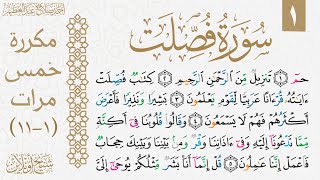 ١
سُورَةُ فُصِّلَتْ
مكررة
خمس
مرات
(١-١١)
حمٓ ۝١ تَنزِيلٌ مِّنَ ٱلرَّحْمَٰنِ ٱلرَّحِيمِ ۝٢ كِتَٰبٌ فُصِّلَتْ
ءَايَٰتُهُۥ قُرْءَانًا عَرَبِيًّا لِّقَوْمٍ يَعْلَمُونَ ۝٣ بَشِيرًا وَنَذِيرًا فَأَعْرَضَ
أَكْثَرُهُمْ فَهُمْ لَا يَسْمَعُونَ ۝٤ وَقَالُوا۟ قُلُوبُنَا فِىٓ أَكِنَّةٍ
مِّمَّا تَدْعُونَآ إِلَيْهِ وَفِىٓ ءَاذَانِنَا وَقْرٌ وَمِنۢ بَيْنِنَا وَبَيْنِكَ حِجَابٌ
فَٱعْمَلْ إِنَّنَا عَٰمِلُونَ ۝٥ قُلْ إِنَّمَآ أَنَا۠ بَشَرٌ مِّثْلُكُمْ يُوحَىٰٓ إِلَىَّ